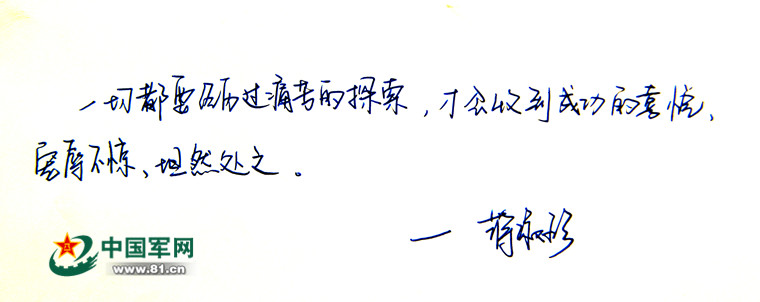 一切都要过痛苦的探索，才会收到成功的喜悦，
宠辱不惊、坦然处之。
— 蒋
中国军网
www.81.cn